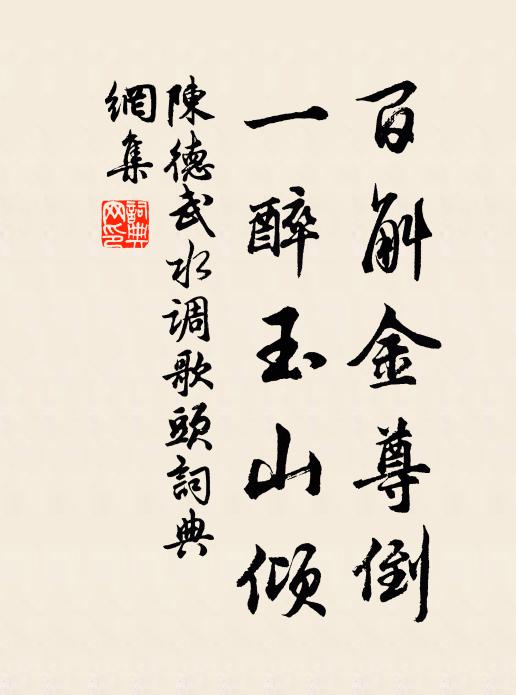 百斛金尊倒
一醉玉山倾
陳德武水调歌頭詞典
網集
詞典網印